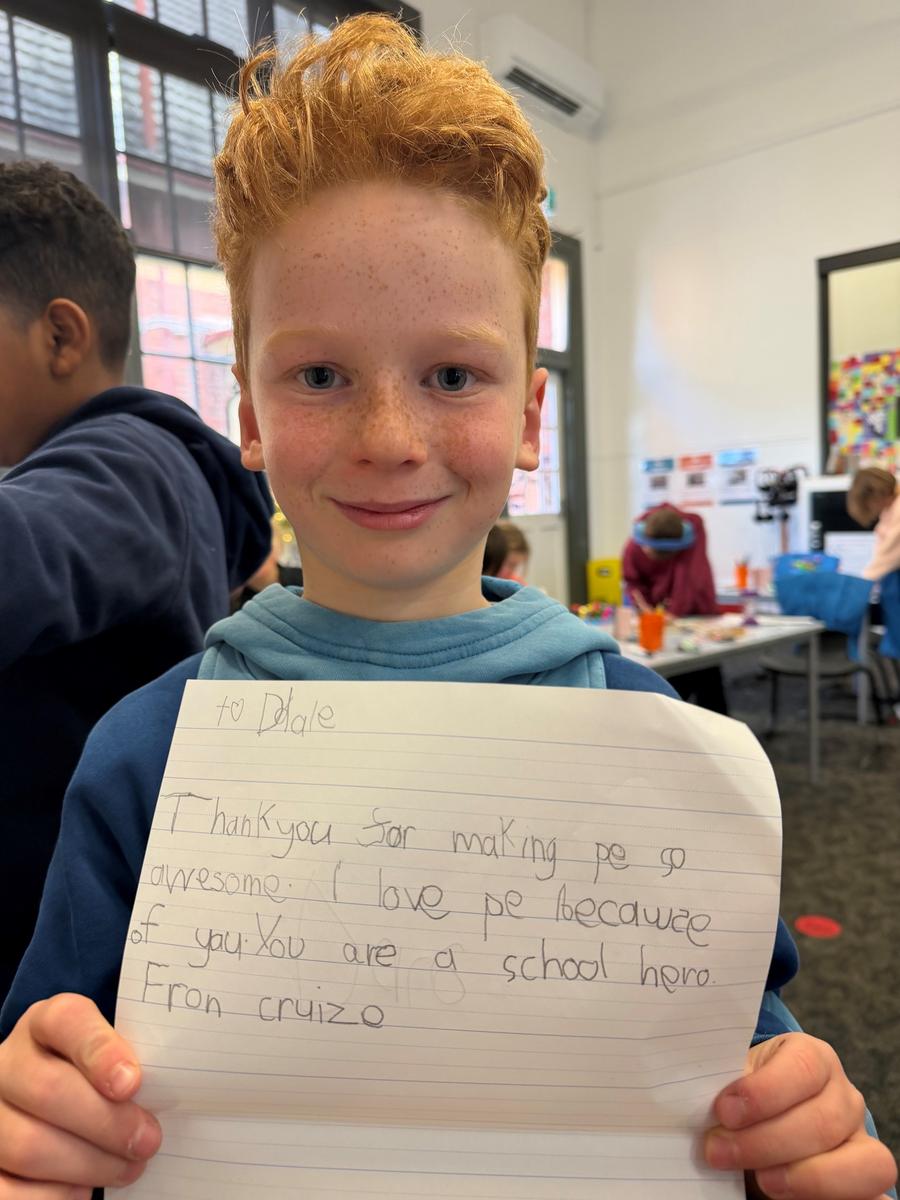 to Ddale
Thankyou for making pe so
awesome. I love pe becauze
of you. You are a school hero.
Fron cruizo